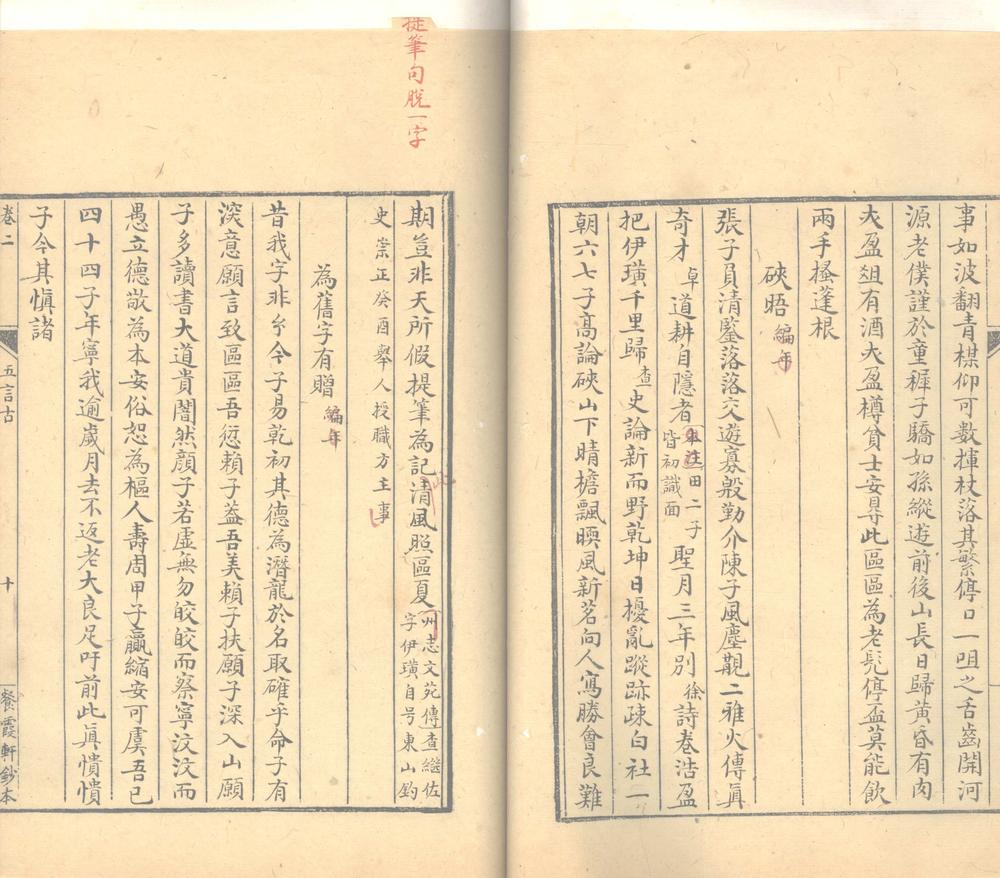 事如波翻青楳仰可數揮杖落其繁停口一咀之舌齒開河
源老僕謹於童穉子驕如孫縱遊前後山長日歸黃昏有肉
大盈俎有酒大盈樽貧士安㝵此區區為老髠停盃莫能飲
兩手搔蓬根
硤晤 編年
張子員清鑒落落交遊寡殷勤介陳子風塵覯二雅火傳眞
奇才卓道耕自隱者本注田二子皆初識面聖月三年別徐詩卷浩盈
把伊璜千里歸查史論新而野乾坤日擾亂蹤跡疎白社一
朝六七子高論硤山下晴檐飄暎風新茗向人寫勝會良難
提筆句脫一字
期豈非天所假提筆為記此清風照區夏州志文苑傳查繼佐字伊璜自号東山釣
史崇正癸酉舉人授職方主事
為舊字有贈 編年
昔我字非今今子易乾初其德為潛龍於名取確乎命子有
深意願言致區區吾愆賴子益吾美賴子扶願子深入山願
子多讀書大道貴闇然顏子若虛無勿皎皎而察寧汶汶而
愚立德敬為本安俗恕為樞人壽周甲子贏縮安可虞吾已
四十四子年寧我逾歲月去不返老大良足吁前此眞憒憒
子今其愼諸
卷二
五言古
十
餐霞軒鈔本